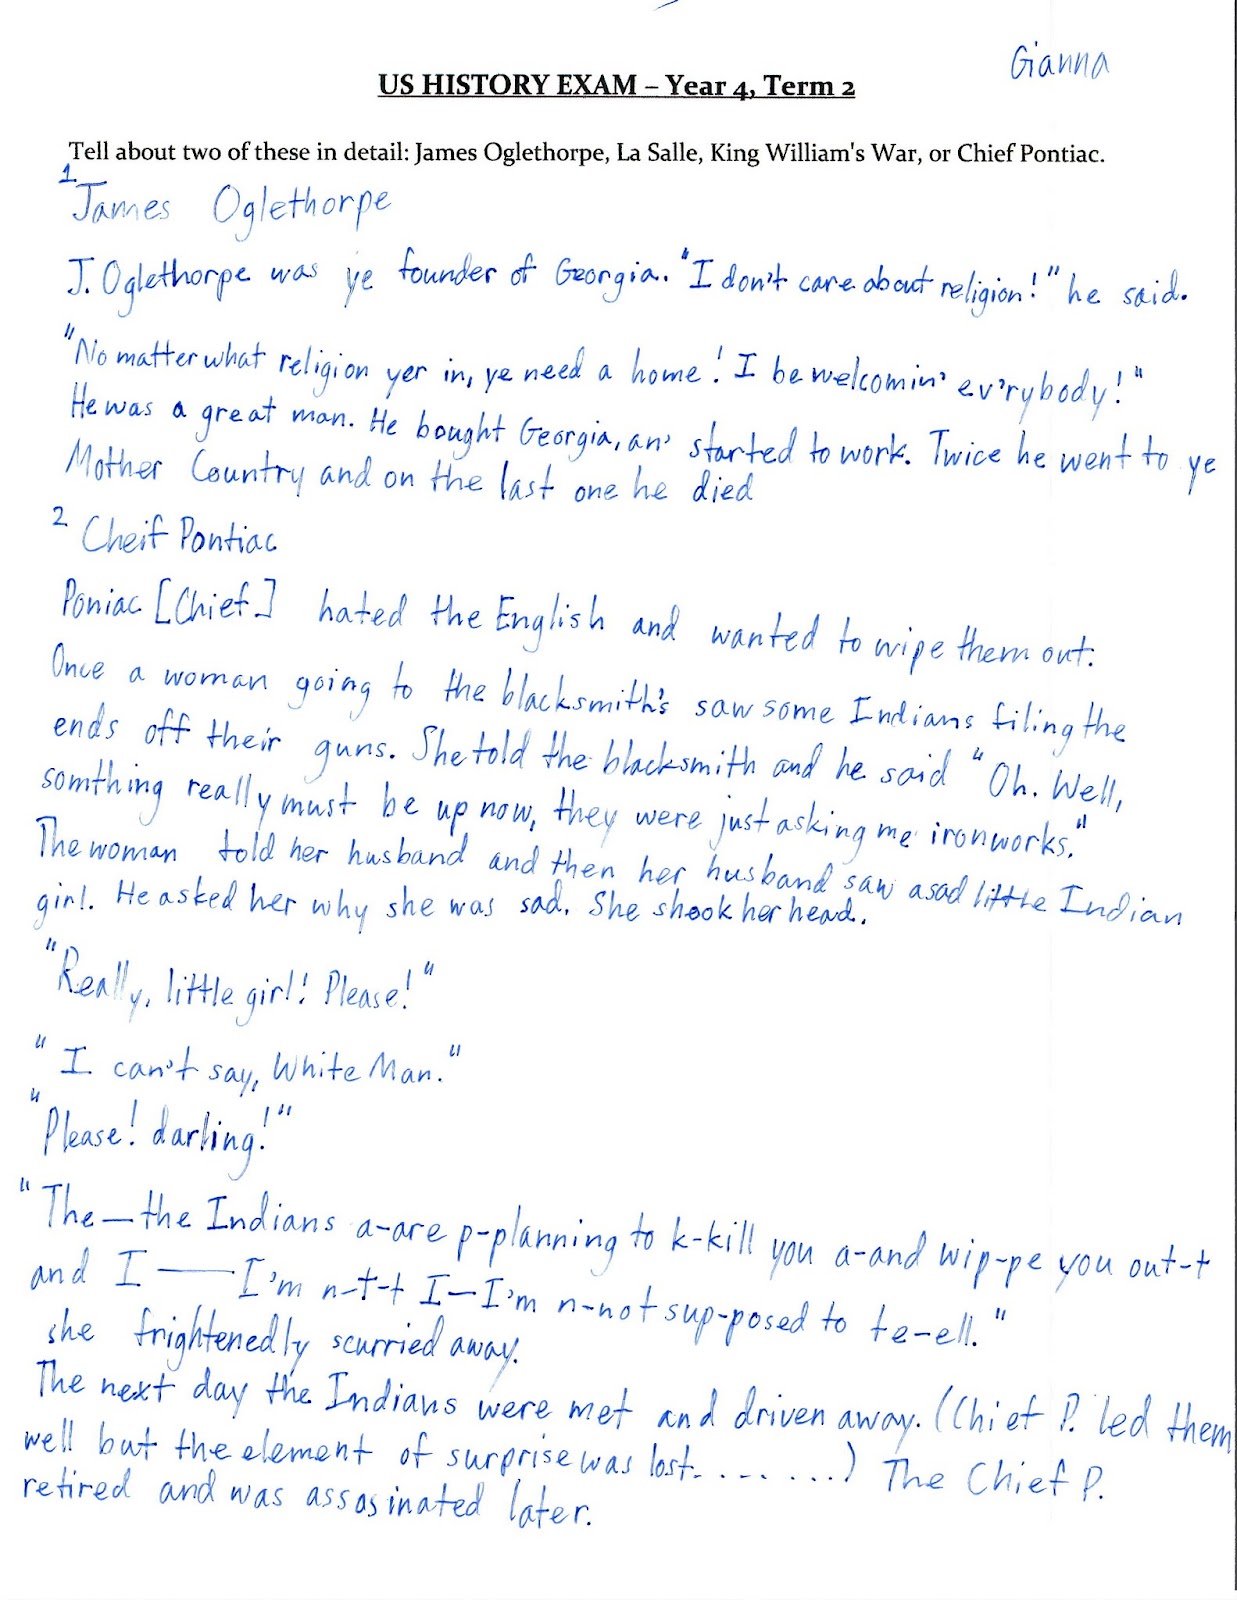 Gianna
US HISTORY EXAM – Year 4, Term 2
Tell about two of these in detail: James Oglethorpe, La Salle, King William's War, or Chief Pontiac.
1
James Oglethorpe
J. Oglethorpe was ye founder of Georgia. "I don't care about religion!" he said.
"No matter what religion yer in, ye need a home! I be welcomin' ev'rybody!"
He was a great man. He bought Georgia, an' started to work. Twice he went to ye
Mother Country and on the last one he died
2 Cheif Pontiac
Poniac [Chief] hated the English and wanted to wipe them out.
Once a woman going to the blacksmith's saw some Indians filing the
ends off their guns. She told the blacksmith and he said "Oh. Well,
somthing really must be up now, they were just asking me ironworks."
The woman told her husband and then her husband saw a sad little Indian
girl. He asked her why she was sad. She shook her head.
"Really, little girl! Please!"
"I can't say, White Man."
"Please! darling!"
"The—the Indians a-are p-planning to k-kill you a-and wip-pe you out-t
and I — I'm n-t-t I—I'm n-not sup-posed to te-ell."
she frightenedly scurried away.
The next day the Indians were met and driven away. (Chief P. led them
well but the element of surprise was lost........) The Chief P.
retired and was assasinated later.